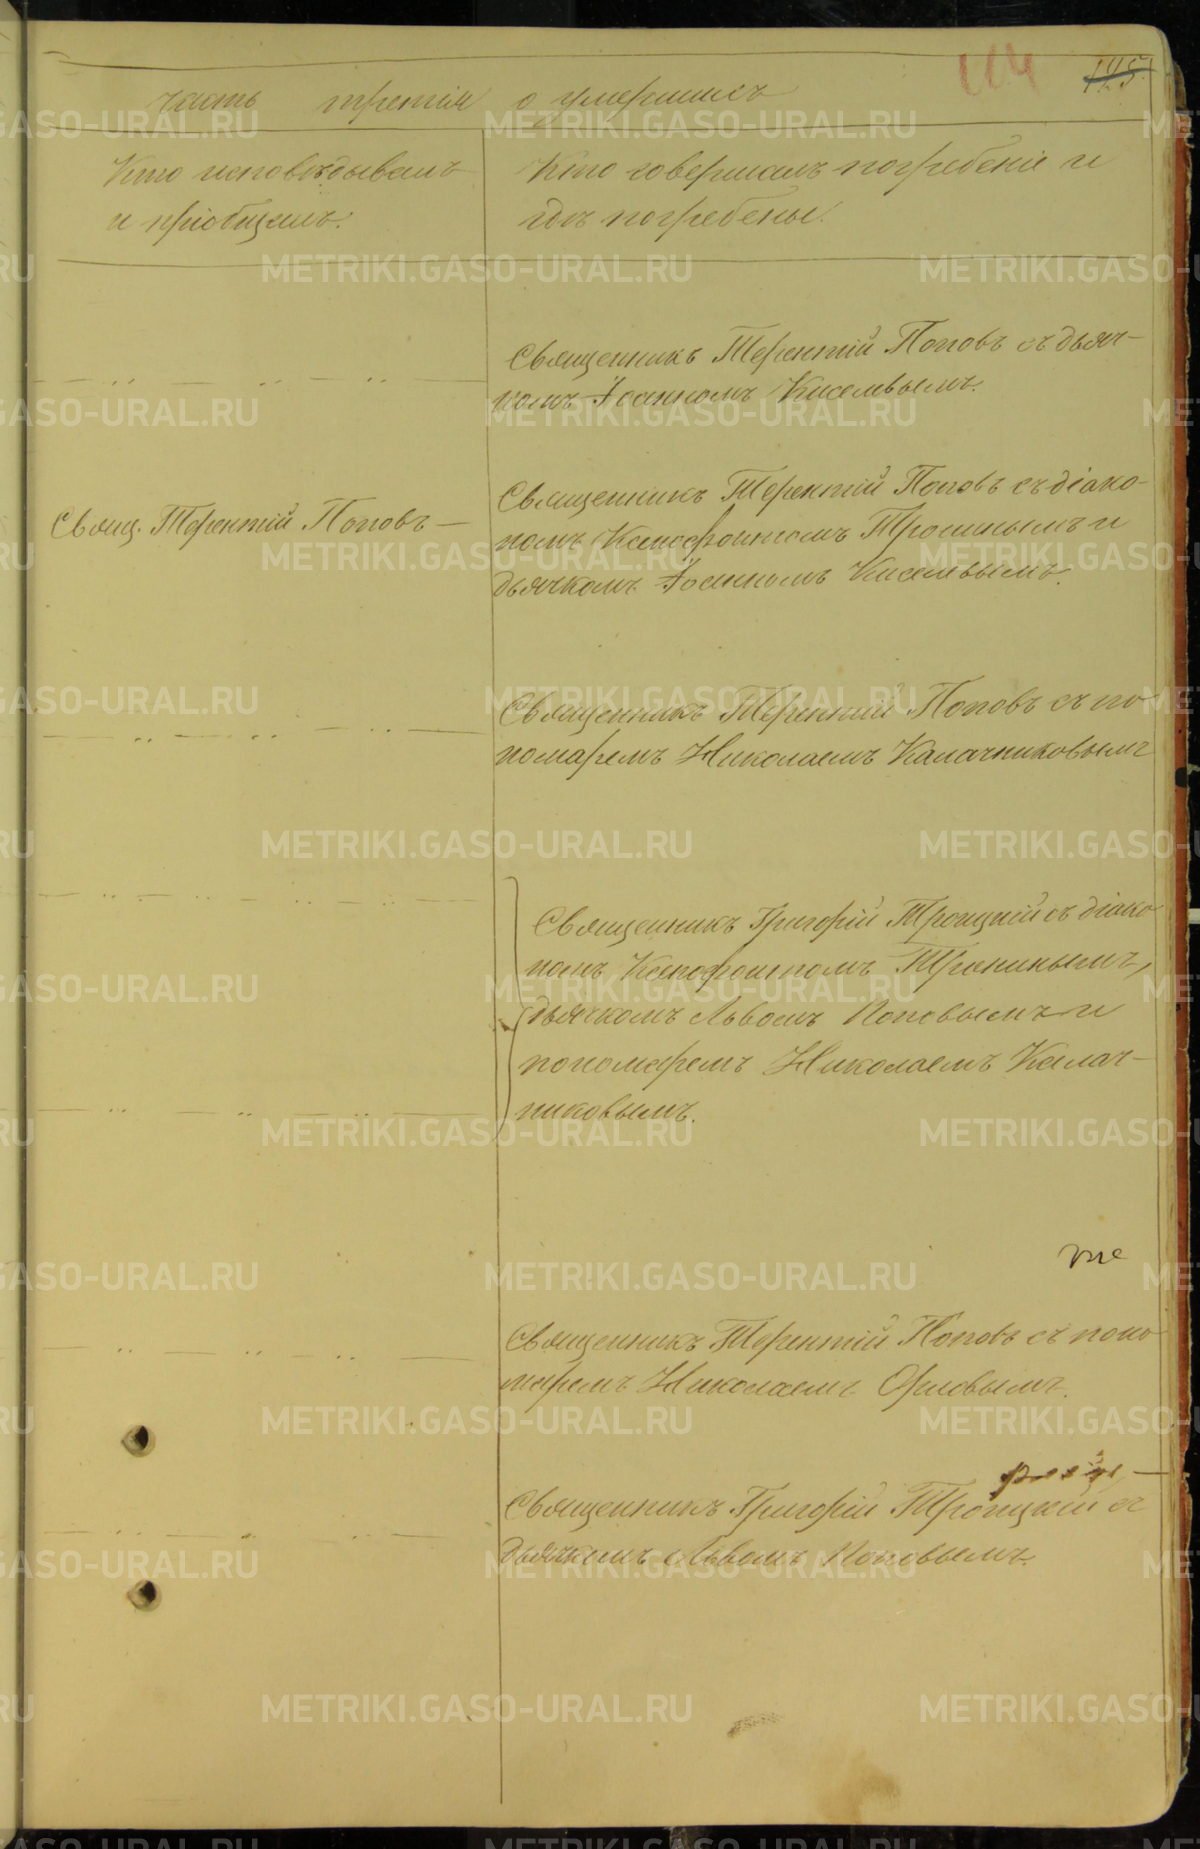 114 125
часть третія о умершихъ
Кто исповѣдывалъ
и пріобщалъ.
Кто совершалъ погребеніе и
гдѣ погребены.
Священникъ Терентій Поповъ съ дьяч-
комъ Іоанномъ Киселевымъ.
Свящ. Терентій Поповъ —
Священникъ Терентій Поповъ съ діако-
номъ Ксенофонтомъ Трониным и
дьячкомъ Іоанномъ Киселевымъ.
Священникъ Терентій Поповъ съ по
номаремъ Николаемъ Калачниковымъ
Священникъ Григорій Троицкій съ діако
номъ Ксенофонтомъ Тронинымъ,
дьячкомъ Львомъ Поповымъ и
пономаремъ Николаемъ Калач-
никовымъ.
Священникъ Терентій Поповъ съ поно
маремъ Николаемъ Орловымъ.
Священникъ Григорій Троицкій съ
дьячкомъ Львомъ Поповымъ.
METRIKI.GASO-URAL.RU